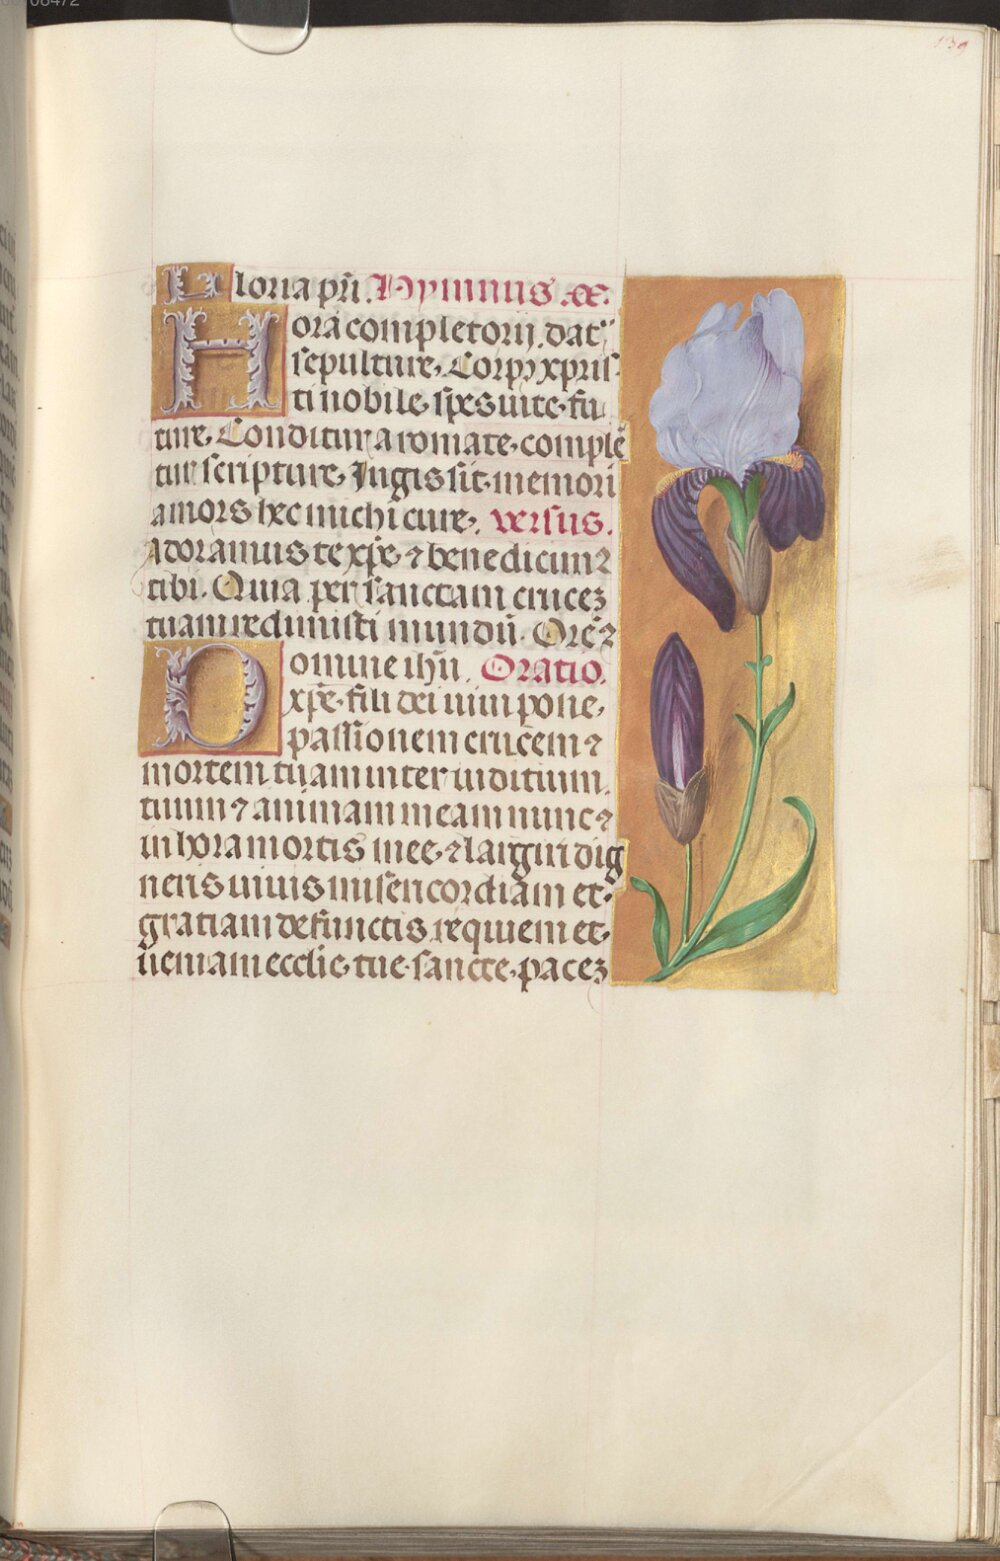 139
Gloria pr̄i. Hymnus. ꝛc̄.
Hora completorij. dat᷑
sepulture, Corp⁹ xpris-
ti nobile, spes uite, fu
ture, Conditur aromate, complē
tur scripture, Jugis sit memori
a mors hec michi cure, versus.
Adoramus te xp̄e ⁊ benedicim⁹
tibi. Quia per sanctam crucez
tuam redimisti mundū. Ore᷑⁹
Domine ih̄u. Oratio.
xp̄e, fili dei uiui pone,
passionem crucem ⁊
mortem tuam inter iuditium.
tuum ⁊ animam meam nunc ⁊
in hora mortis mee, ⁊ largiri dig
neris uiuis misericordiam et,
gratiam defunctis requiem et,
ueniam ecclie, tue, sancte, pacez